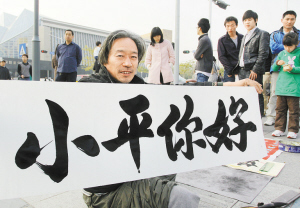 小平你好